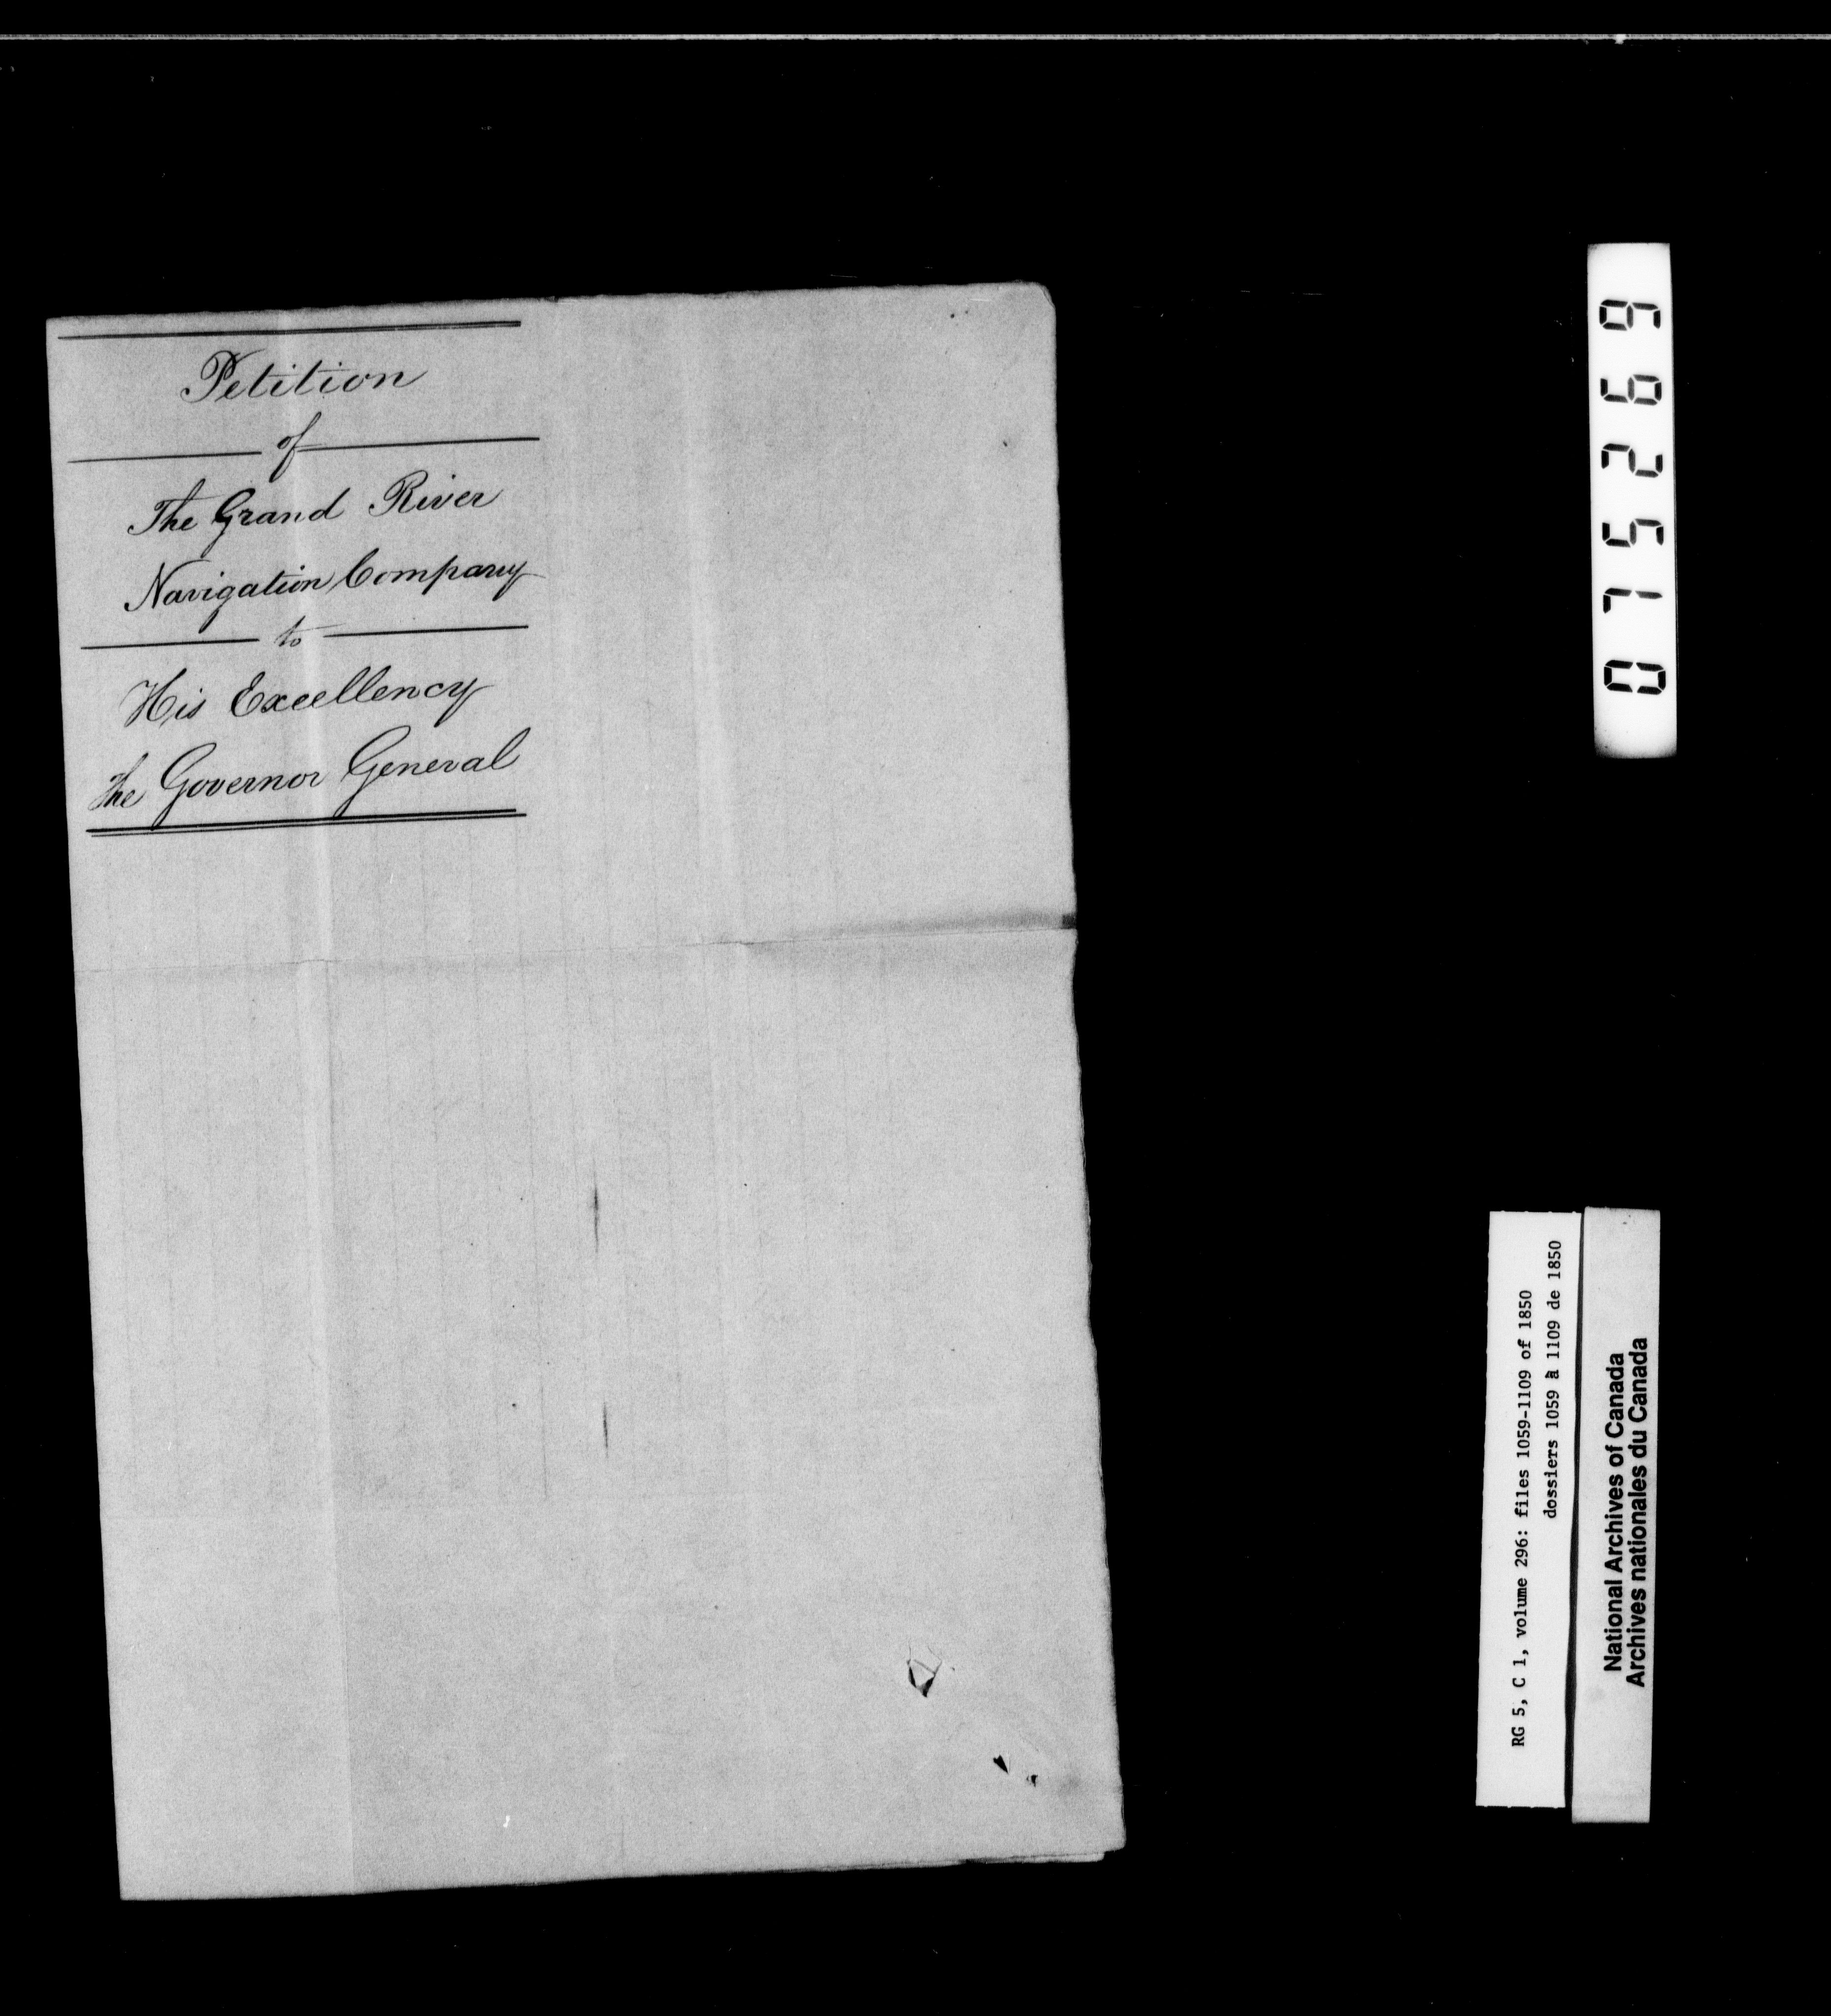 Petition
of
The Grand River
Navigation Company
to
His Excellency
the Governor General
075269
RG 5, C 1, volume 296: files 1059-1109 of 1850
dossiers 1059 à 1109 de 1850
National Archives of Canada
Archives nationales du Canada